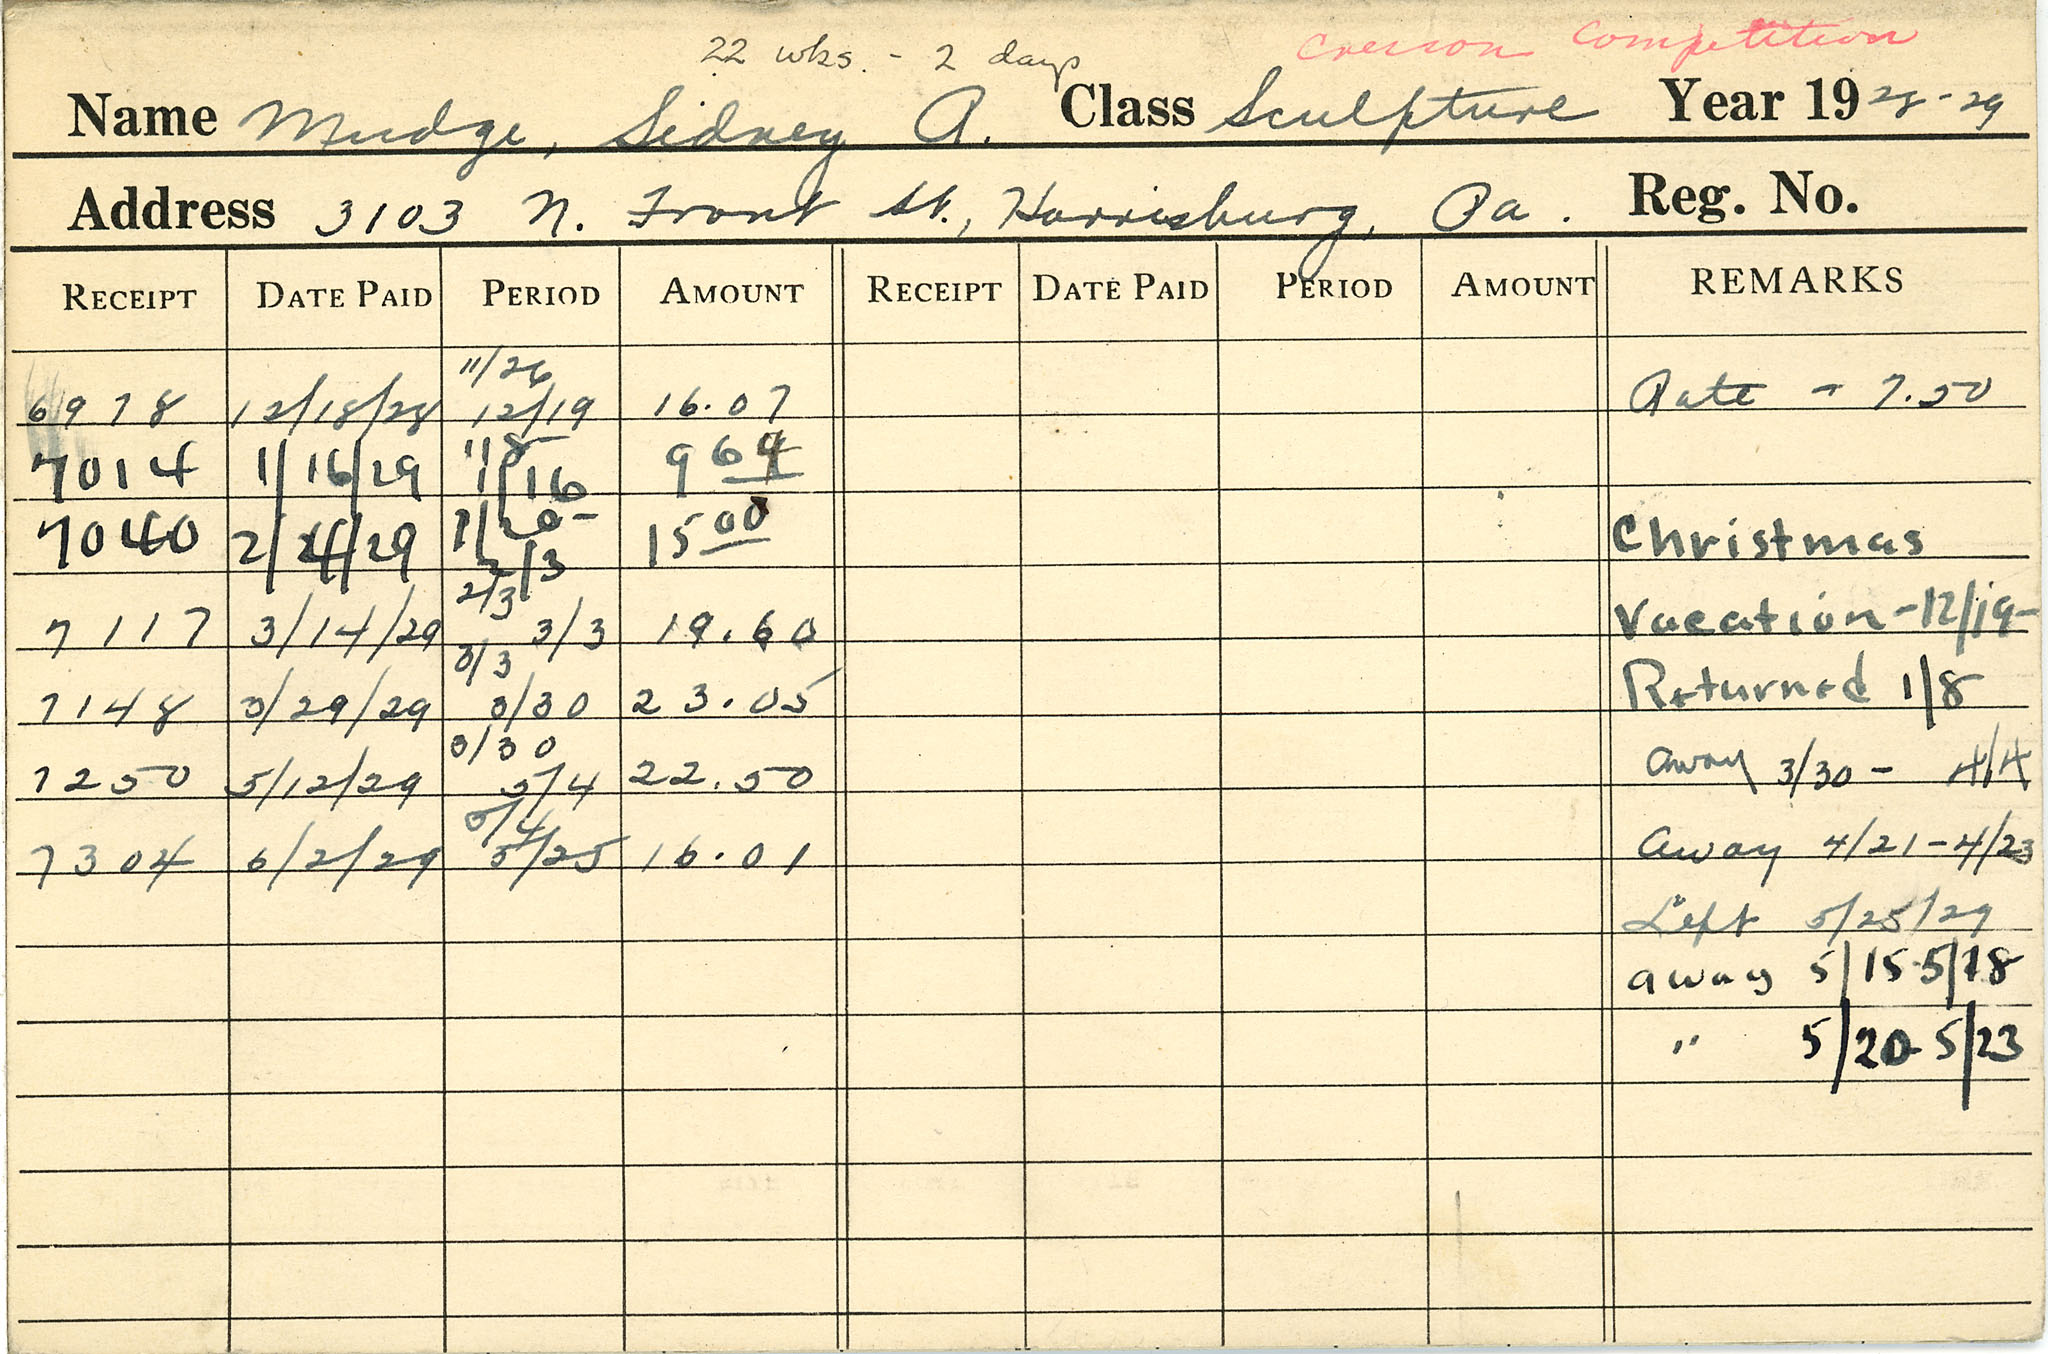 22 wks. - 2 days Cresson Competition
Name Mudge, Sidney A. Class Sculpture Year 1928-29
Address 3103 N. Front St., Harrisburg, Pa. Reg. No.
RECEIPT DATE PAID PERIOD AMOUNT RECEIPT DATE PAID PERIOD AMOUNT REMARKS
11/26
6978 12/18/28 12/19 16.07 Rate - 7.50
1/8
7014 1/16/29 1/16 9 64
1/20-
7040 2/4/29 2/3 15 00 Christmas
2/3
7117 3/14/29 3/3 19.60 Vacation - 12/19-
3/3
7148 3/29/29 3/30 23.05 Returned 1/8
3/30
7250 5/12/29 5/4 22.50 Away 3/30 - 4/4
5/4
7304 6/2/29 5/25 16.01 Away 4/21 - 4/23
Left 5/25/29
away 5/15-5/18
" 5/20-5/23